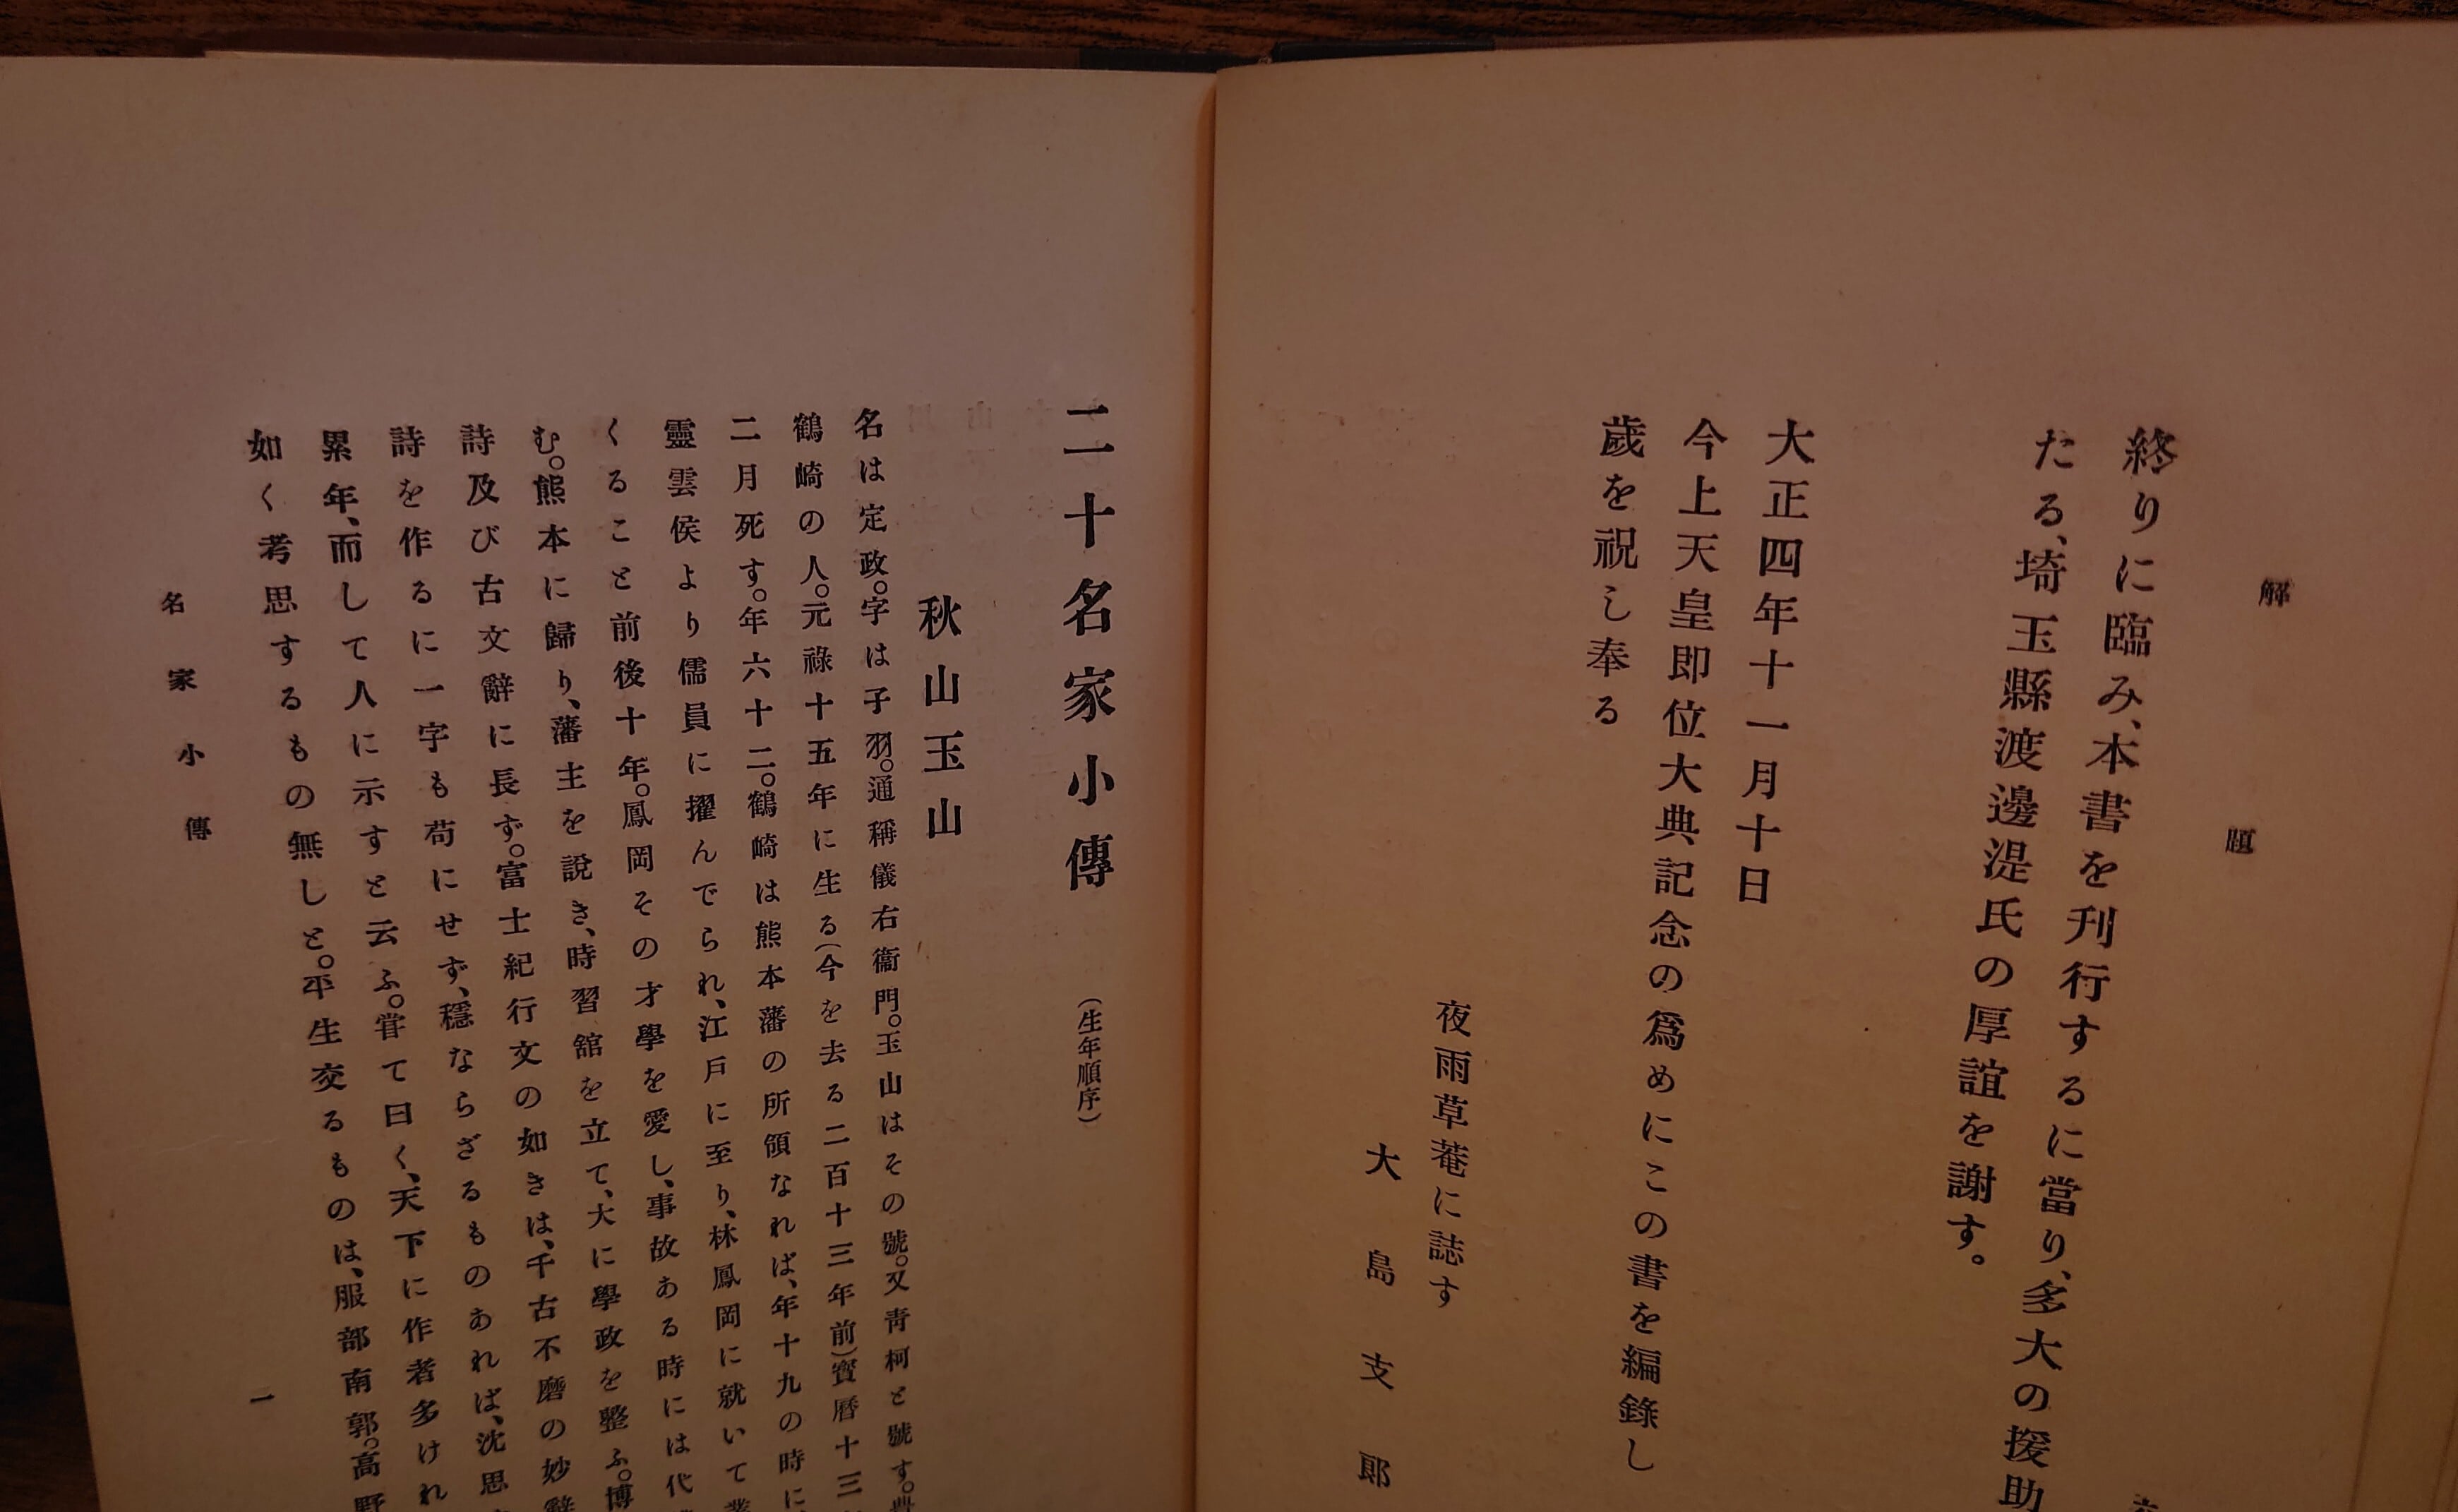 解題
終りに臨み、本書を刊行するに當り、多大の援助
たる、埼玉縣渡邊湜氏の厚誼を謝す。
大正四年十一月十日
今上天皇即位大典記念の爲めにこの書を編錄し
歲を祝し奉る
夜雨草菴に誌す
大島支郞
二十名家小傳(生年順序)
秋山玉山
名は定政。字は子羽。通稱儀右衞門。玉山はその號。又靑柯と號す。
鶴崎の人。元祿十五年に生る(今を去る二百十三年前)寶曆十三
二月死す。年六十二。鶴崎は熊本藩の所領なれば、年十九の時に
靈雲侯より儒員に擢んでられ、江戶に至り、林鳳岡に就いて
くること前後十年。鳳岡その才學を愛し、事故ある時には代
む。熊本に歸り、藩主を說き、時習舘を立て、大に學政を整ふ。博
詩及び古文辭に長ず。富士紀行文の如きは、千古不磨の妙辭
詩を作るに一字も苟にせず、穩ならざるものあれば、沈思
累年、而して人に示すと云ふ。甞て曰く、天下に作者多けれ
如く考思するもの無しと。平生交るものは、服部南郭。高野
名家小傳
一